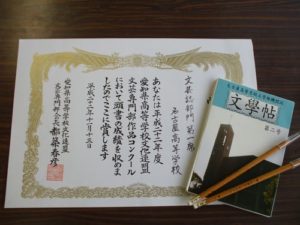 文芸誌部門 第一席
名古屋高等学校
あなたは平成二十二年度
愛知県高等学校文化連盟
文芸専門部作品コンクール
において頭書の成績を収めま
したのでここに賞します
平成二十二年十二月十五日
愛知県高等学校文化連盟
文芸専門部会長
文學帖
第二号